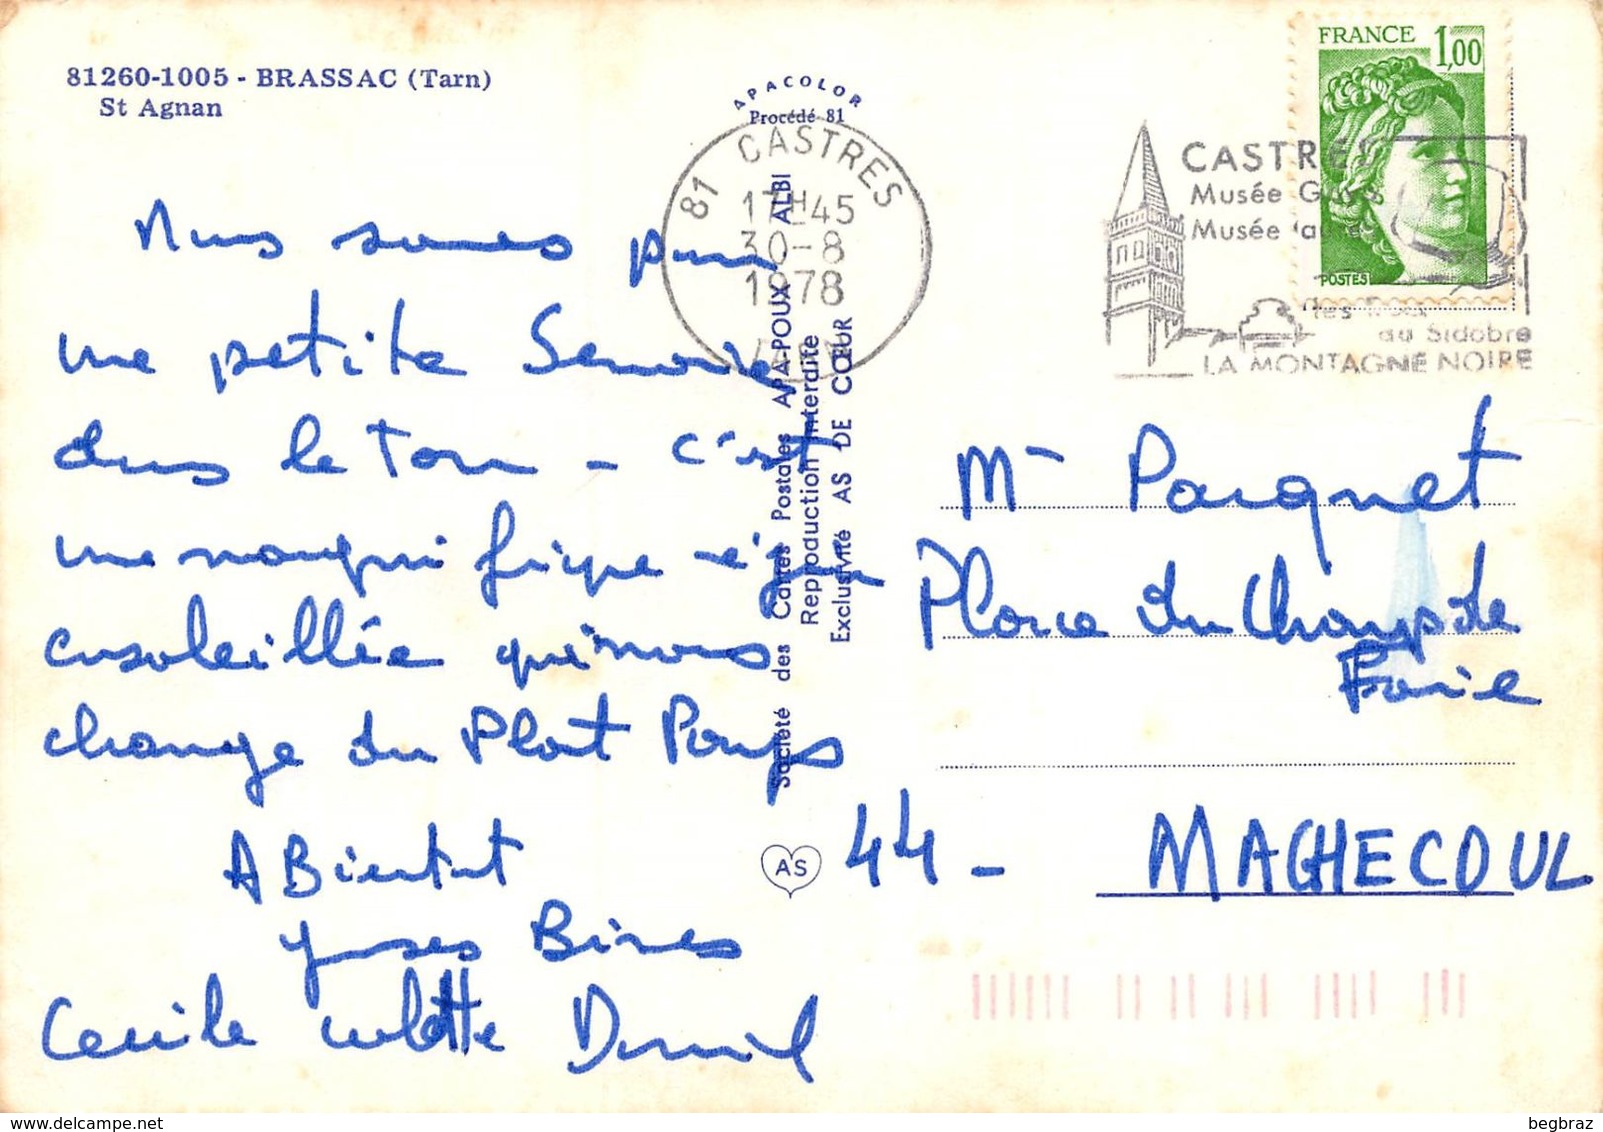 81260-1005 - BRASSAC (Tarn)
St Agnan
APACOLOR
Procédé 81
81 CASTRES
17H45
30-8
1978
TARN
FRANCE 1,00
POSTES
CASTRES
Musée Goya
Musée
au Sidobre
LA MONTAGNE NOIRE
Société des Cartes Postales APA-POUX ALBI
Reproduction interdite
Exclusivité AS DE CŒUR
AS
Nous sommes pour
une petite Semaine
dans le Tarn - c'est
une magnifique région
ensoleillée qui nous
change du Plat Pays
A Bientôt
Grosses Bises
Cécile Colette Daniel
Mr Paquet
Place du Champ de
Foire
44 - MACHECOUL
begbraz